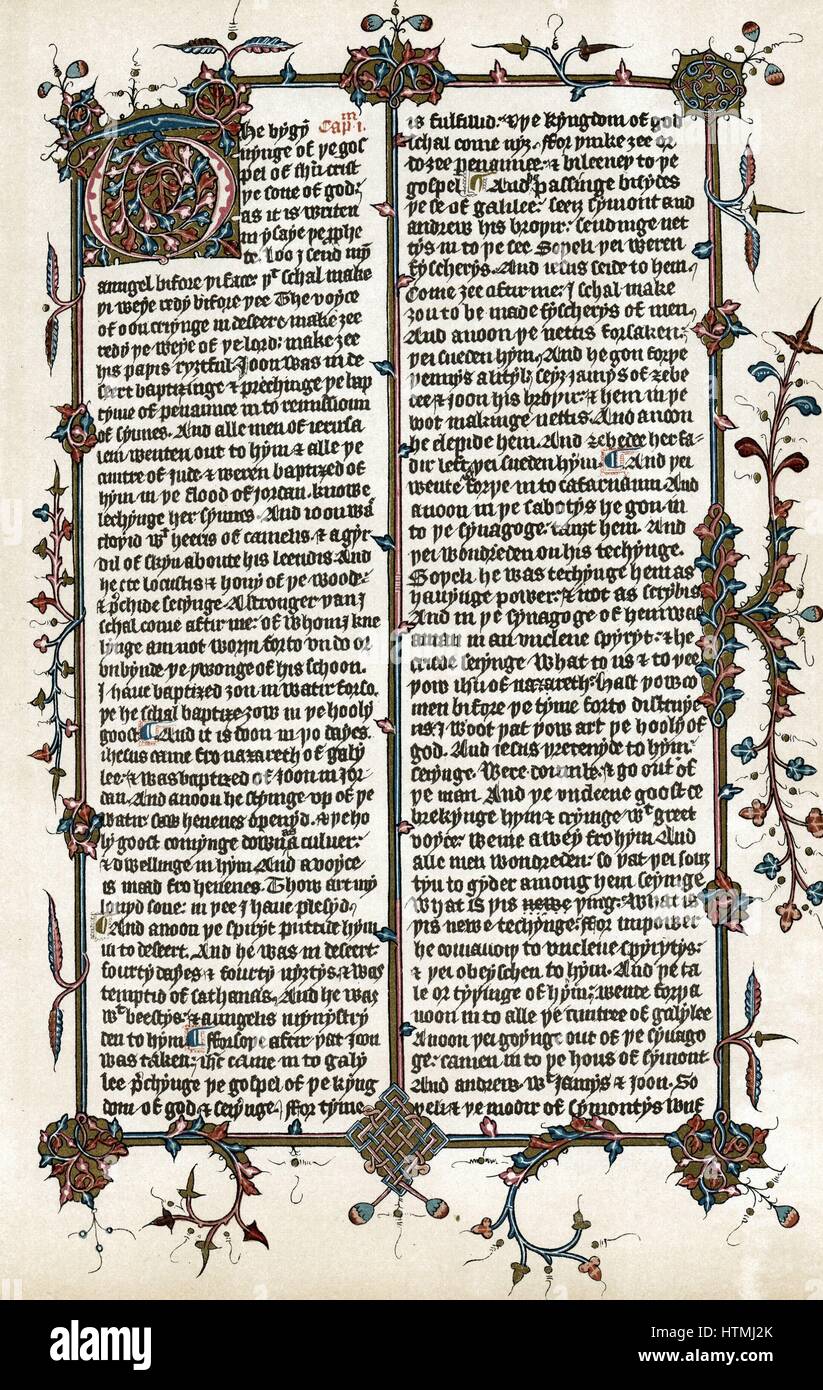 The bygȳ Capᵐ i.
nynge of ye gos
pel of ihū crist
ye sone of god:
as it is writen
in ysaye ye p̄phe
te. Loo j send mȳ
aungel bifore yi face: yᵗ schal make
yi weye redy bifore yee The voyce
of oon cryinge in desert: make zee
redy ye weye of ye lord: make zee
his papis ryztful. Joon was in de
sert baptizinge & prechinge ye bap
tyme of penaunce in to remissioun
of synnes. And alle men of ierusa
lem wenten out to hym & alle ye
cuntre of Jude & weren baptized of
hym in ye flood of jordan. knowe
lechynge her synnes. And ioon was
cloyid wᵗ heeris of camelis: & a gyr
dil of skyn aboute his leendis And
he ete locustis & hony of ye wood:
& p̄chide seiynge. A stronger yan j
schal come aftir me: of whom j kne
lynge am not worpi forto vndo or
vnbynde ye ywonge of his schoon.
I haue baptized zou in watir forso.
ye he schal baptize zow in ye hooly
goost And it is doon in yo dayes.
ihesus came fro nazareth of galy
lee: & was baptized of Joon in Jor
dan. And anoon he styinge vp of ye
watir saw heuenes openyd. & ye ho
ly goost comynge down as a culuer:
& dwellinge in hym And a voyce
is maad fro heuenes. Thow art my
louyd sone: in yee j haue plesyd.
And anoon ye spiryt puttide hym
in to desert. And he was in desert
fourty dayes & fourty nyztys. & was
temptid of sathanas. And he was
wᵗ beestys: & aungelis mynystry
den to hym fforsoye aftir yat joon
was taken: ihc came in to galy
lee p̄chynge ye gospel of ye kyng
dom of god & seiynge. ffor tyme
is fulfillid: & ye kyngdom of god
schal come nyz. fforyinke zee or
do zee penaunce: & bileeuey to ye
gospel And he passinge bisydes
ye se of galilee: seez symont and
andrew his broyir: sendinge net
tys in to ye see Soyeli yei weren
fyscherys. And iesus seide to hem.
Come zee aftur me: j schal make
zou to be made fyscherys of men.
And anoon ye nettis forsaken:
yei sueden hym. And he gon forye
yennys a lityl: seyz jamys of zebe
dee & joon his broyir: & hem in ye
boot makinge nettis. And anoon
he clepide hem. And zebedee her fa-
dir left: yei sueden hym. And yei
wente forye in to cafarnaum And
anoon in ye sabotys he gon in
to ye synagoge: tauzt hem. And
yei wondreden on his techynge.
Soyeli he was techynge hem as
hauynge power: & not as scrybis
And in ye synagoge of hem was
a man in an vnclene spyryt: & he
criede seiynge What to us & to yee
yow ihū of nazareth: Hast yow co
men bifore ye tyme forto distruye
us: j woot yat yow art ye hooly of
god. And iesus yretenyde to hym:
seiynge. Were doumb: & go out of
ye man. And ye vnclene goost: de
brekynge hym & cryinge wᵗ greet
voyce: wente awey fro hym And
alle men wondreden: so yat yei souz
tyn to gyder among hem seiynge
What is yis newe ying: What is
yis newe techynge: ffor in power
he comaundiy to vnclene spyrytys:
& yei obeyschen to hym. And ye ta
le or tyyinge of hym: wente forya
noon in to alle ye cuntree of galylee
Anoon yei goynge out of ye synago
ge: camen in to ye hous of symont
And andrew wᵗ Jamys & joon. So
yeli & ye modir of symontys wiif
alamy
Image ID: HTMJ2K
www.alamy.com